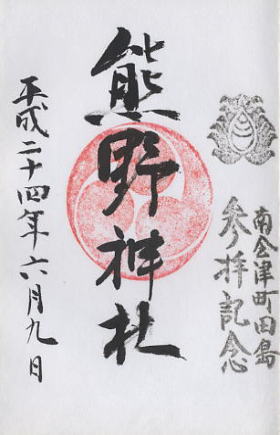 南会津町田島
参拝記念
熊野神社
平成二十四年六月九日